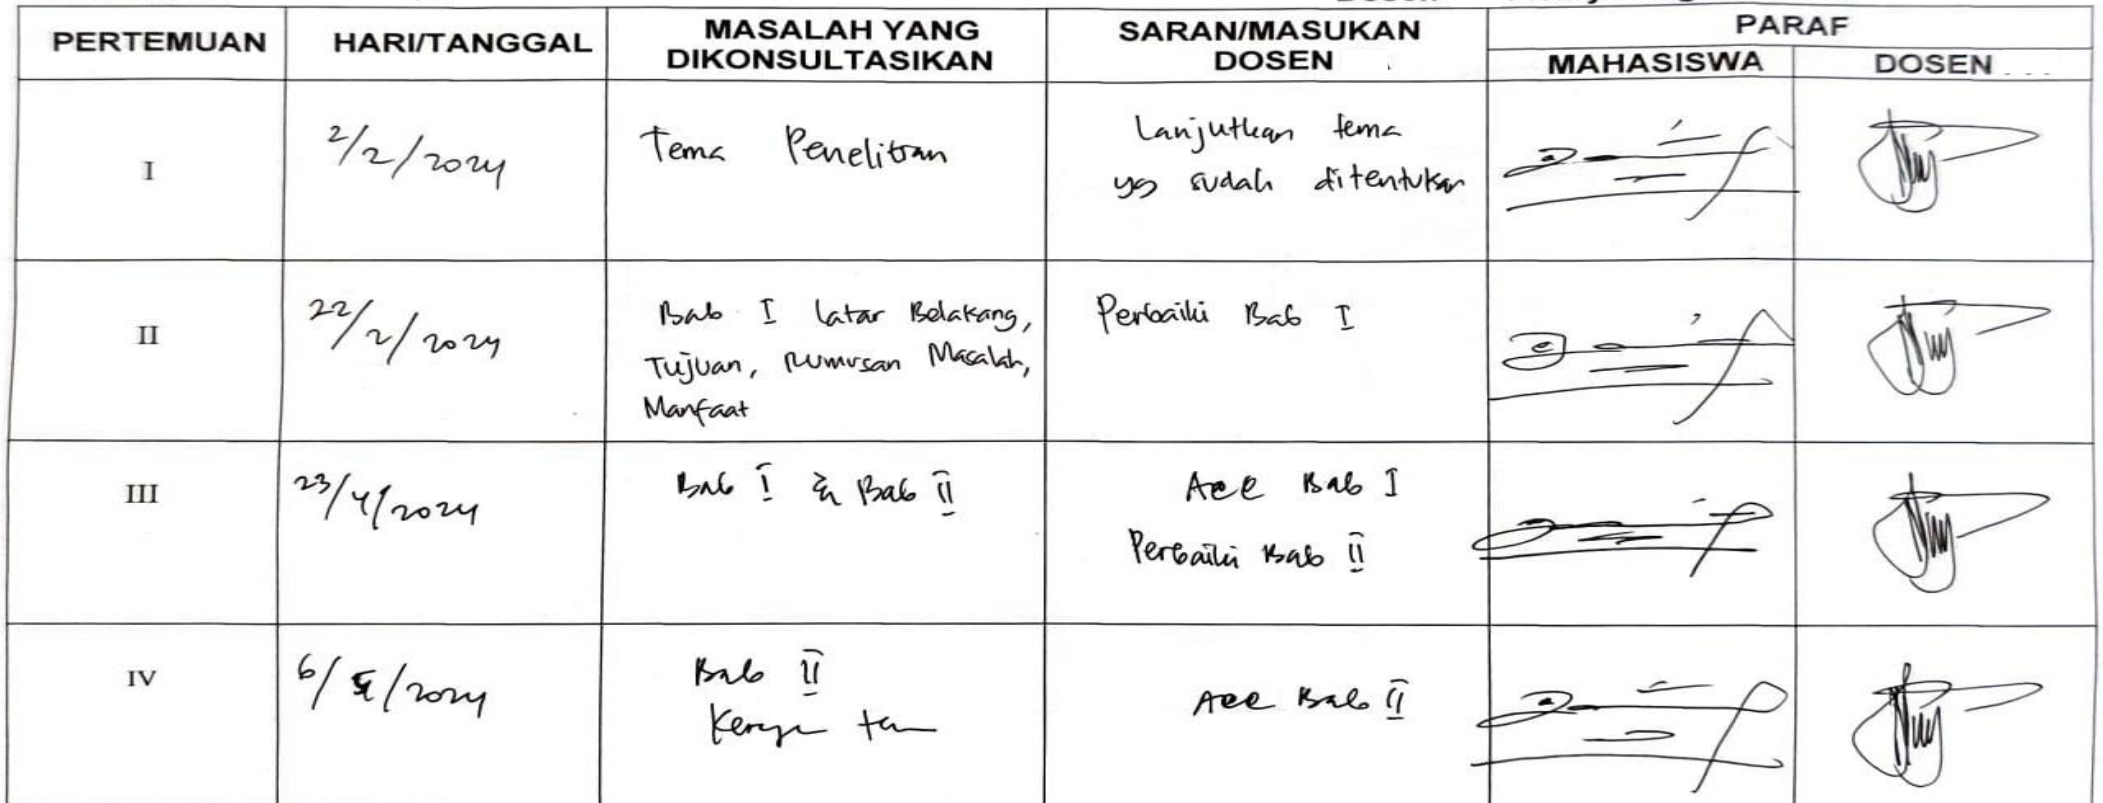 PERTEMUAN HARI/TANGGAL MASALAH YANG DIKONSULTASIKAN SARAN/MASUKAN DOSEN PARAF
MAHASISWA DOSEN
I 2/2/2024 Tema Penelitian Lanjutkan tema
yg sudah ditentukan
II 22/2/2024 Bab I latar Belakang, Perbaiki Bab I
Tujuan, Rumusan Masalah,
Manfaat
III 23/4/2024 Bab I & Bab II Acc Bab I
Perbaiki Bab II
IV 6/5/2024 Bab II Acc Bab II